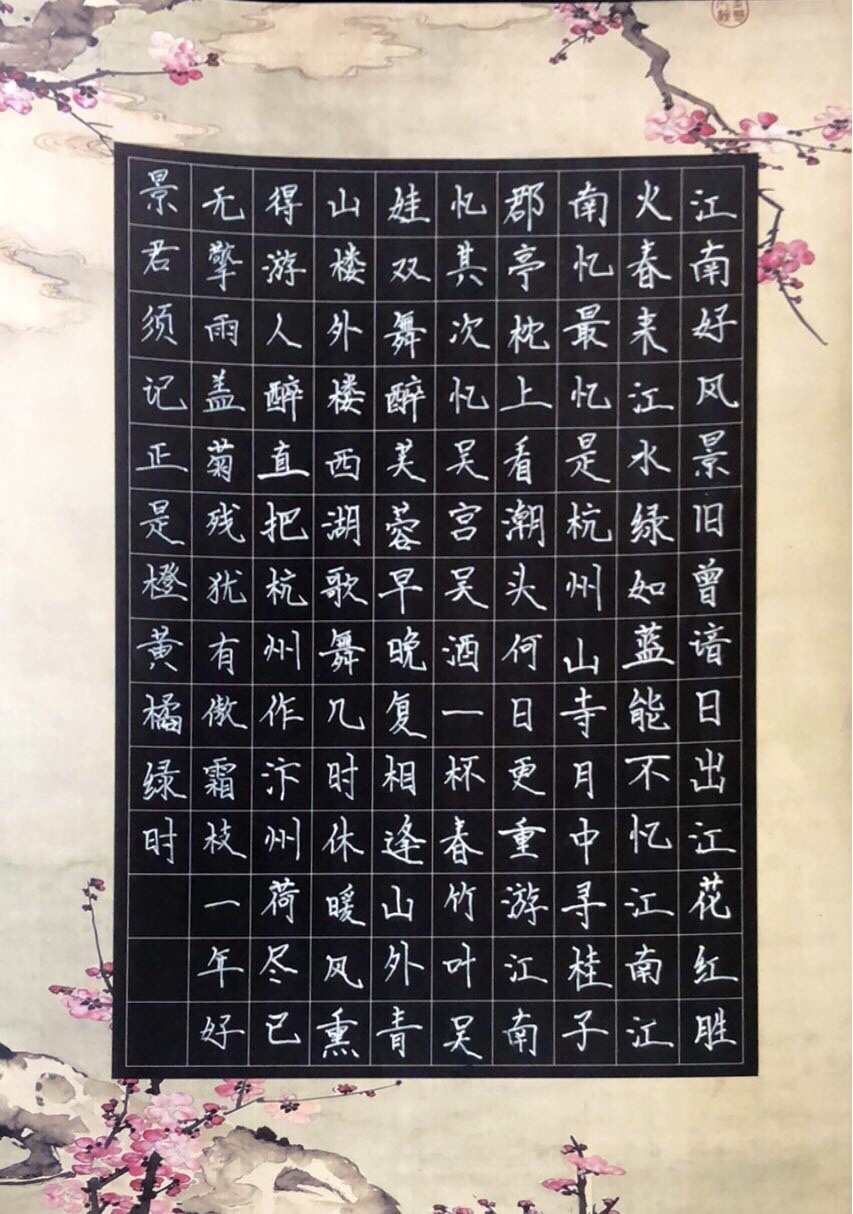 江南好风景旧曾谙日出江花红胜
火春来江水绿如蓝能不忆江南江
南忆最忆是杭州山寺月中寻桂子
郡亭枕上看潮头何日更重游江南
忆其次忆吴宫吴酒一杯春竹叶吴
娃双舞醉芙蓉早晚复相逢山外青
山楼外楼西湖歌舞几时休暖风熏
得游人醉直把杭州作汴州荷尽已
无擎雨盖菊残犹有傲霜枝一年好
景君须记正是橙黄橘绿时